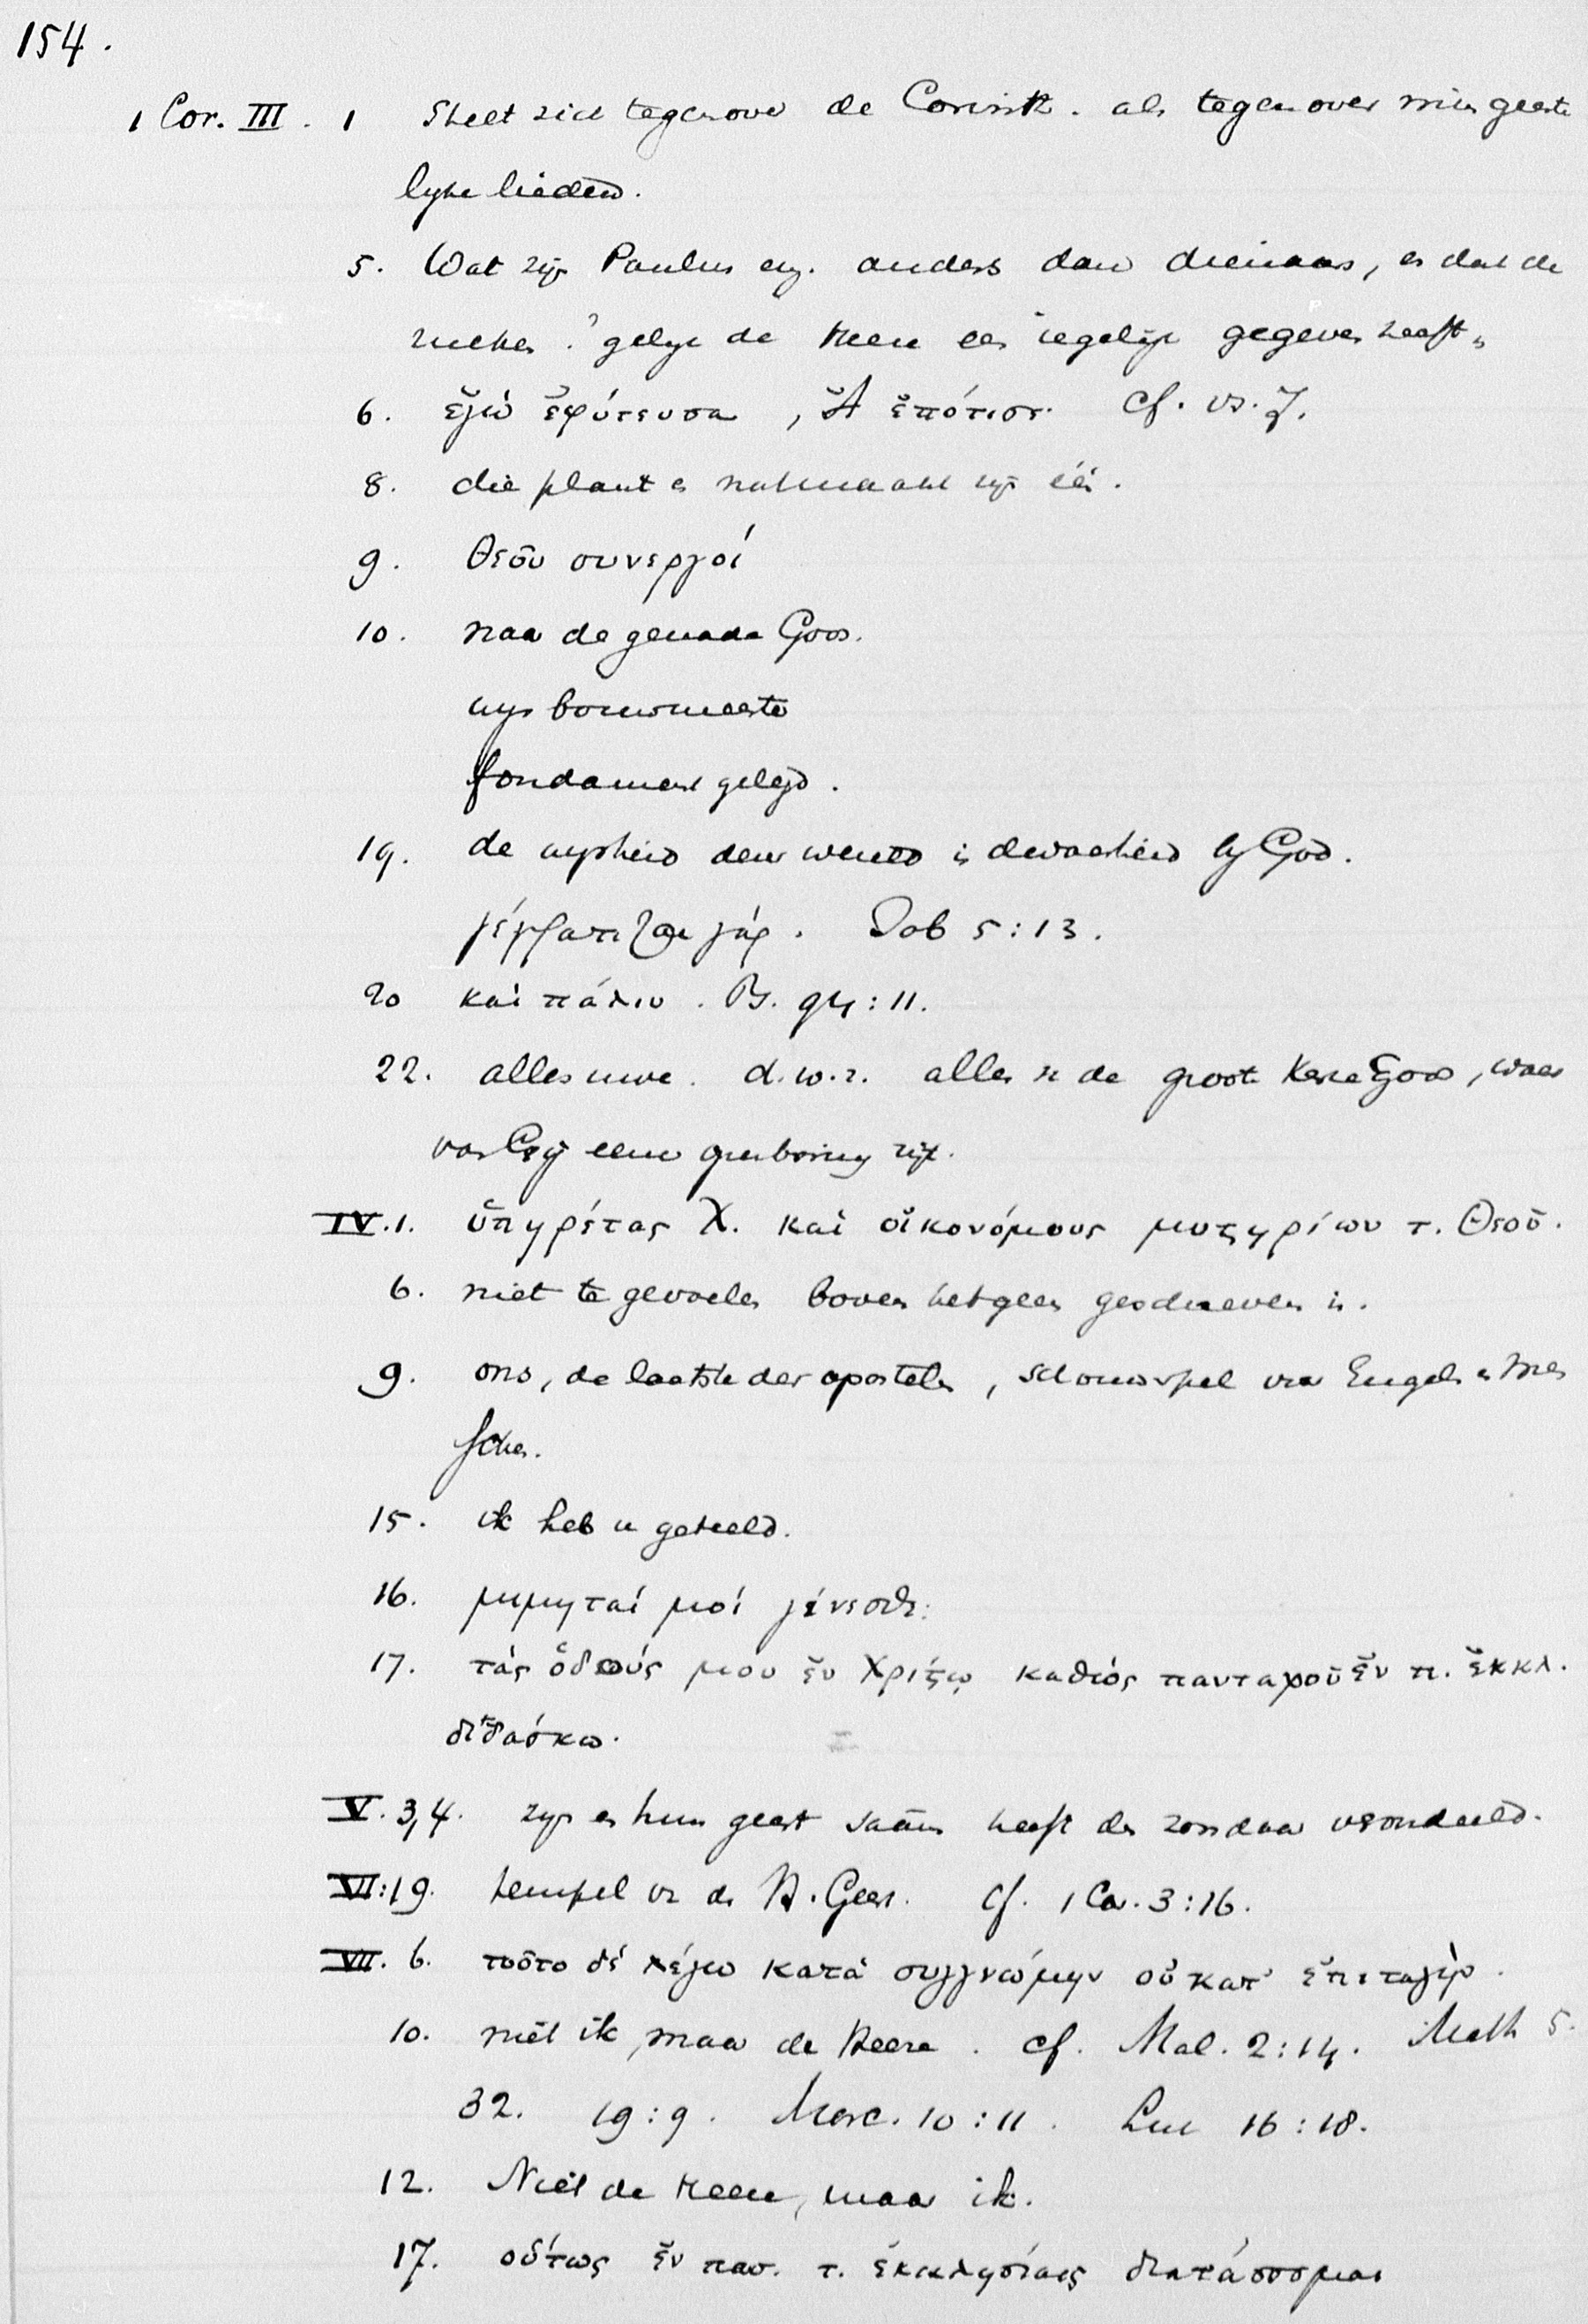 154.
1 Cor. III. 1 Stelt zich tegenover de Corinth. als tegenover min geeste
lyke lieden.
5. Wat zijn Paulus enz. anders dan dienaars, en dat de
zulken? gelyk de Heere een iegelijk gegeven heeft„
6. ἐγώ ἐφύτευσα, Ἀ ἐπότισε. cf. vs. 7.
8. die plant en natmaakt zijn één.
9. Θεοῦ συνεργοί
10. naar de genade Gods.
wys bouwmeester
fondament gelegd.
19. de wysheid dezer wereld is dwaasheid by God.
γέγραπται γάρ. Job 5:13.
20 καὶ πάλιν. Ps. 94:11.
22. alles uwe. d.w.z. alles in de groote Kerk Gods, waar
van Gij eene openbaring zijt.
IV. 1. ὑπηρέτας Χ. καὶ οἰκονόμους μυστηρίων τ. Θεοῦ.
6. niet te gevoelen boven hetgeen geschreven is.
9. ons, de laatste der apostelen, schouwspel voor Engelen en Men
schen.
15. ik heb u geteeld.
16. μιμηταί μοί γίνεσθε.
17. τάς ὁδούς μου ἐν Χριστῳ καθώς πανταχοῦ ἐν π. ἐκκλ.
διδάσκω.
V. 3,4. zyn en hun geest saâm heeft den zondaar veroordeeld.
VI:19. tempel v. d. H. Geest. cf. 1 Cor. 3:16.
VII. 6. τοῦτο δέ λέγω κατὰ συγγνώμην οὐ κατ' ἐπιταγήν.
10. niet ik, maar de Heere. cf. Mal. 2:14. Matth 5.
32. 19:9. Marc. 10:11. Luc 16:18.
12. Niet de Heere, maar ik.
17. οὕτως ἐν πασ. τ. ἐκκλησίαις διατάσσομαι